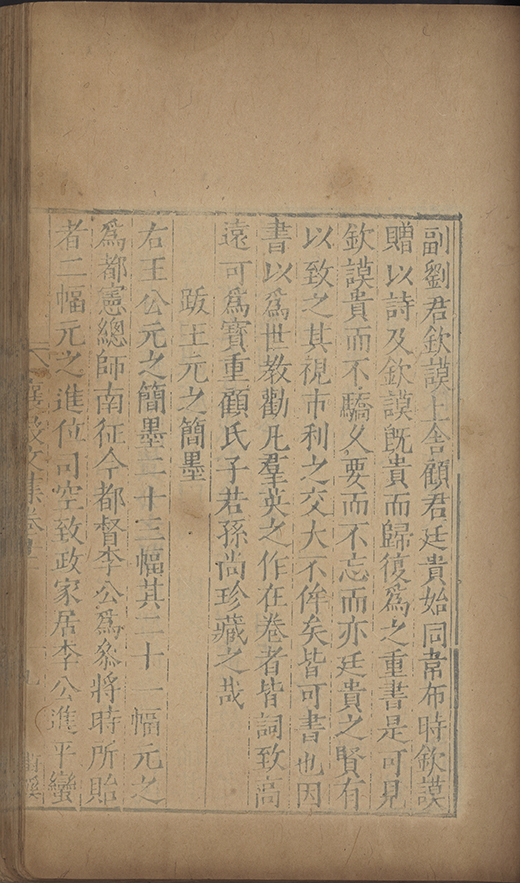 副劉君欽謨上舍顧君廷貴始同韋布時欽謨
贈以詩及欽謨既貴而歸復爲之重書是可見
欽謨貴而不驕久要而不忘而亦廷貴之賢有
以致之其視市利之交大不侔矣皆可書也因
書以爲世教勸凡羣英之作在卷者皆詞致高
遠可爲寶重顧氏子若孫尚珍藏之哉
跋王元之簡墨
右王公元之簡墨二十三幅其二十一幅元之
爲都憲總師南征今都督李公爲叅將時所貽
者二幅元之進位司空致政家居李公進平蠻
文集卷
九